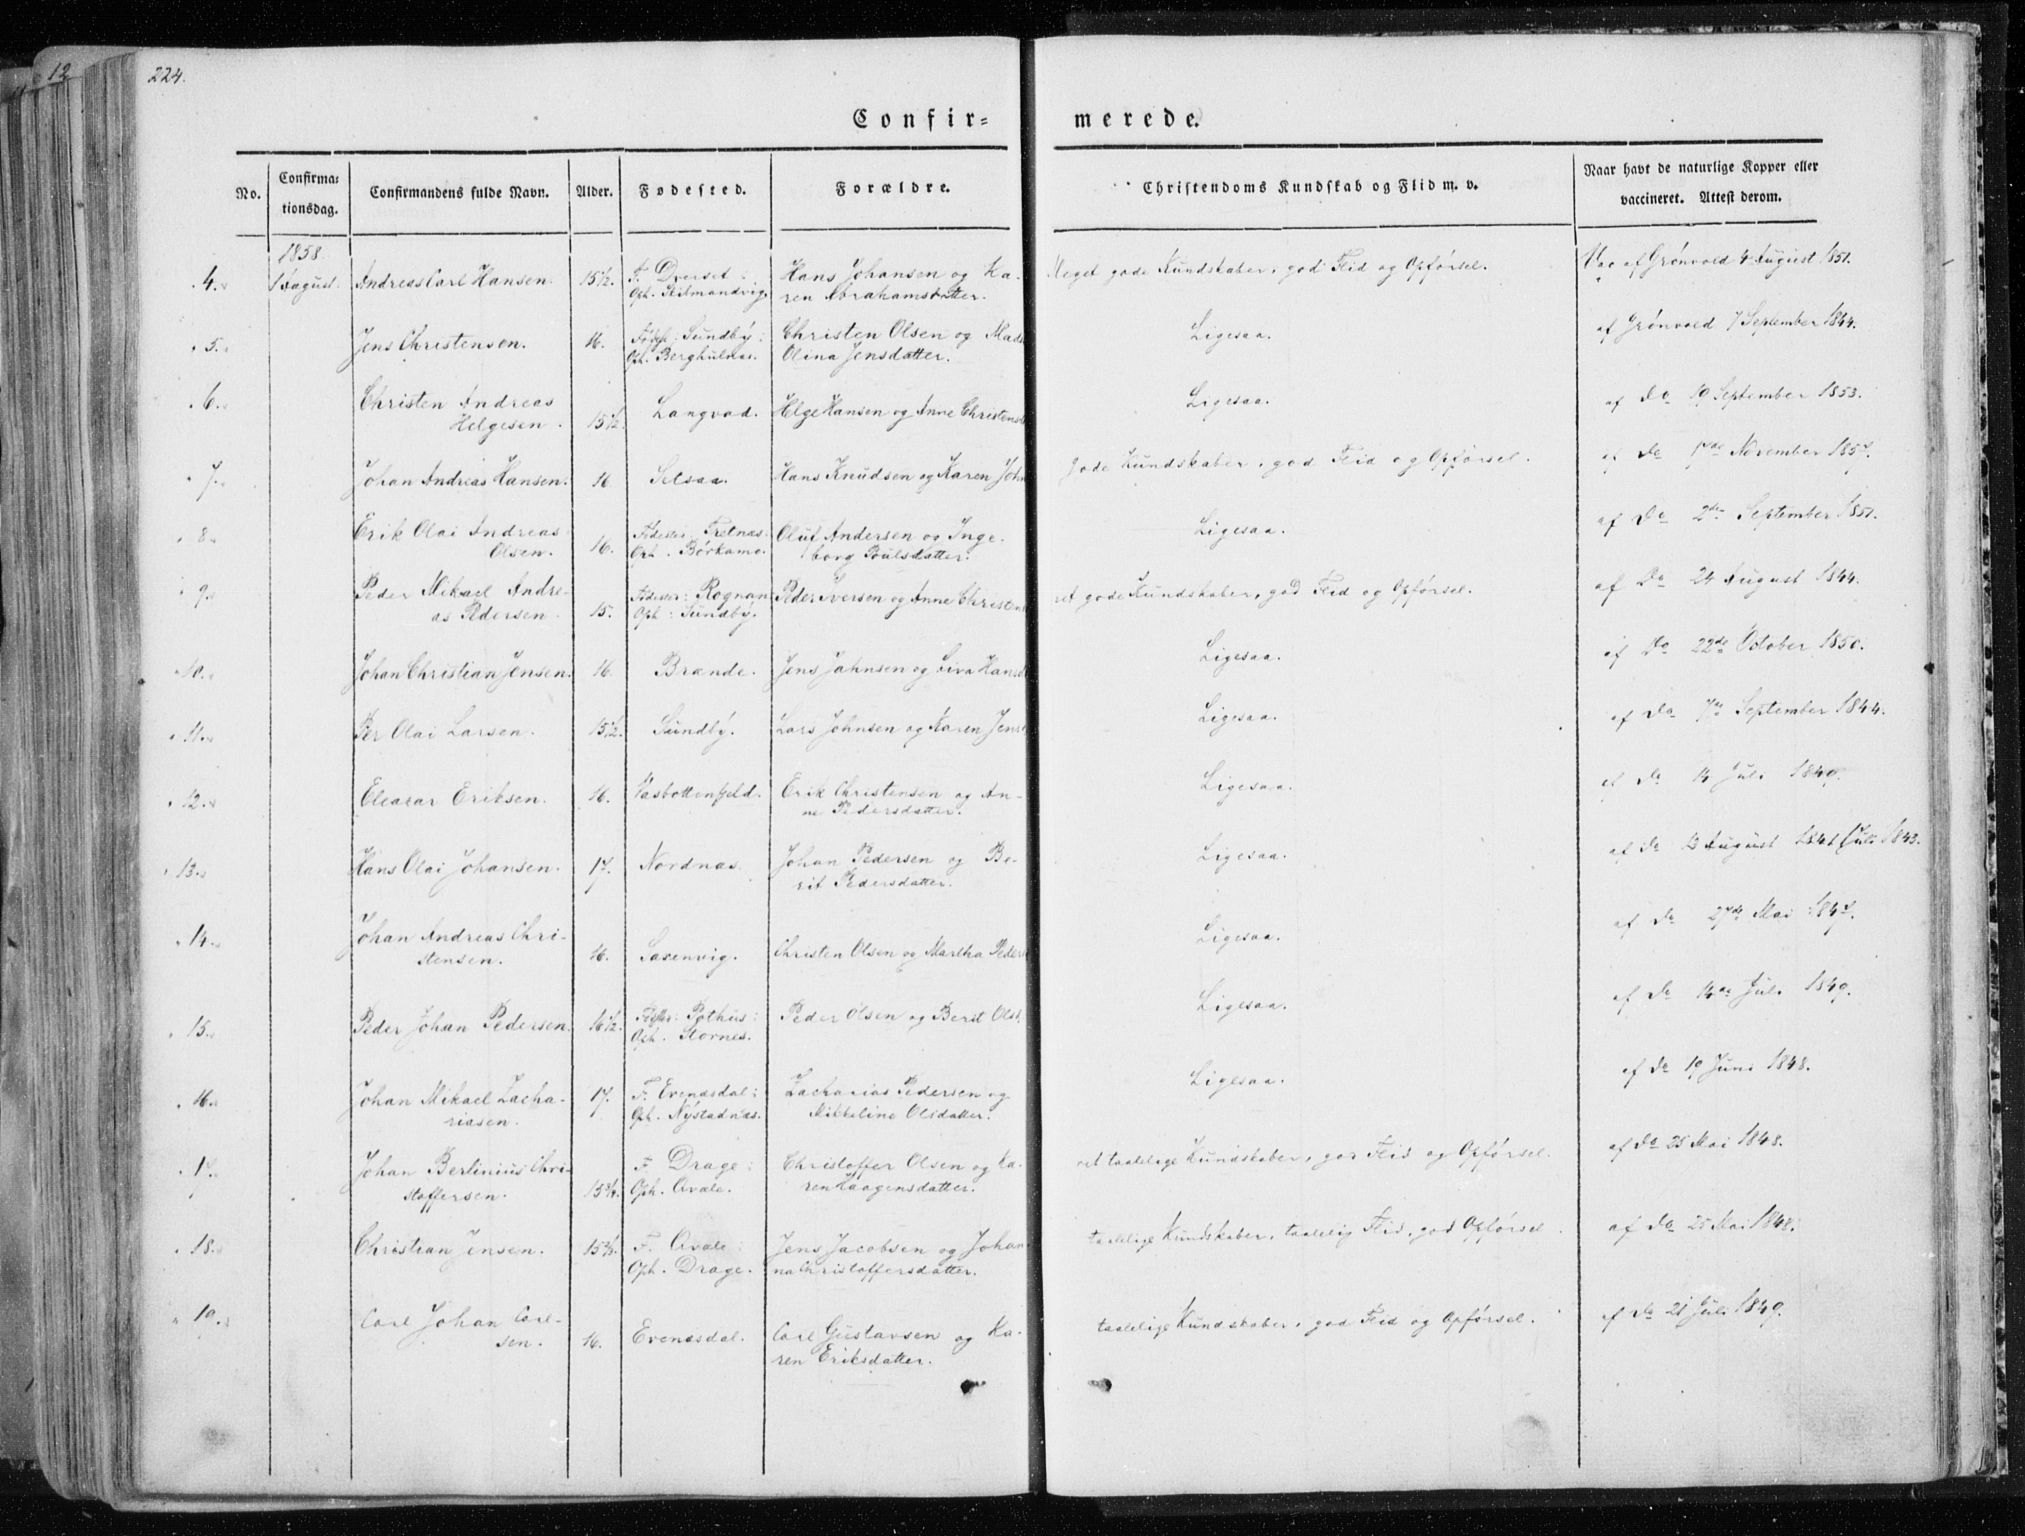 12
224.
Confir= merede.
No. Confirma: tionsdag. Confirmandens fulde Navn. Alder. Fødested. Forældre. Christendoms Kundskab og Flid m. v. Naar havt de naturlige Kopper eller vaccineret. Attest derom.
1858
4. 1 August. Andreas Carl Hansen. 15 1/2. F. Dverset: Hans Johansen og Ka- Meget gode Kundskaber, god Flid og Opførsel. Vac af Grønvold 4 August 1851.
Oph. Skilmandvig. ren Abrahamsdatter.
5. Jens Christensen. 16. Sundby: Christen Olsen og Mads Ligesaa. af Grønvold 7 September 1844.
Oph. Berghulnæs. Olina Jensdatter.
6. Christen Andreas Ligesaa. af Do 19 September 1853.
Helgesen. 15 1/2. Langvad. Helge Hansen og Anne Christensd
7. Johan Andreas Hansen. 16 Selsaa. Hans Knudsen og Karen John gode Kundskaber, god Flid og Opførsel. af Do November
8. Erik Olai Andreas Fødested Fretnæs. Oluf Andersen og Inge- Ligesaa. af Do 2den September 1851.
Olsen. 16. Oph. Børkamo. borg Poulsdatter.
9. Peder Mikael Andre- Rognan Peder Iversen og Anne Christens ret gode Kundskaber, god Flid og Opførsel. af Do 24 August 1844.
as Pedersen. 15. Oph: Sundby.
10. Johan Christian Jensen. 16. Brænde. Jens Jahnsen og Siva Hansd Ligesaa. af Do 22de October 1850.
11. Per Olai Larsen. 15 1/2. Sundby. Lars Johnsen og Karen Jens Ligesaa. af Do 7de September 1844.
12. Eleasar Eriksen. 16. Vasbottenfjeld. Erik Christensen og An- Ligesaa. af Do 14 Juli 1849.
ne Pedersdatter.
13. Hans Olai Johansen. 17. Nordnæs. Johan Pedersen og Be- Ligesaa. af Do 13 August 1841 Juli 1843.
rit Pedersdatter.
14. Johan Andreas Chri- Ligesaa. af Do 27de Mai 1847.
stensen. 16. Saxenvig. Christen Olsen og Martha Peders
15. Peder Johan Pedersen. 16 1/2. Pothus: Peder Olsen og Berit Olsd. Ligesaa. af Do 14de Juli 1849.
Oph. Stornes.
16. Johan Mikael Zacha- 17. F. Evenæsdal: Zacharias Pedersen og Ligesaa. af Do 19 Juni 1848.
riasen. Oph. Nystadnæs. Mikkeline Olsdatter.
17. Johan Bertinius Chri- F. Drage: Christoffer Olsen og Ka- ret taalelige Kundskaber, god Flid og Opførsel. af Do 25 Mai 1848.
stoffersen. 15 3/4. Oph. Qvale. ren Haagensdatter.
18. Christian Jensen. F. Qvale: Jens Jacobsen og Johan- taalelige Kundskaber, taalelig Flid, god Opførsel. af Do 25 Mai 1848.
Oph. Drage. na Christoffersdatter.
19. Carl Johan Carl- taalelige Kundskaber, god Flid og Opførsel. af Do 21 Juli 1849.
sen. 16. Evenæsdal. Carl Gustavsen og Ka-
ren Eriksdatter.